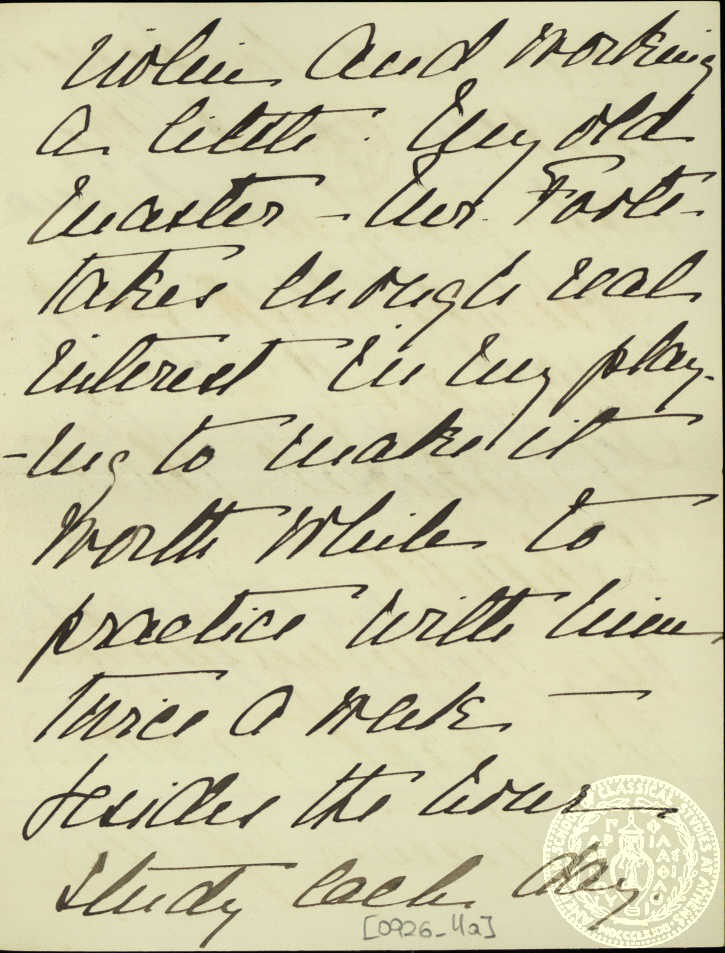 violin and working
a little. My old
master - Mr. Foote -
takes enough real
interest in my play-
-ing to make it
worth while to
practice with him
twice a week —
besides the hour
study each day.
[0926-11a]